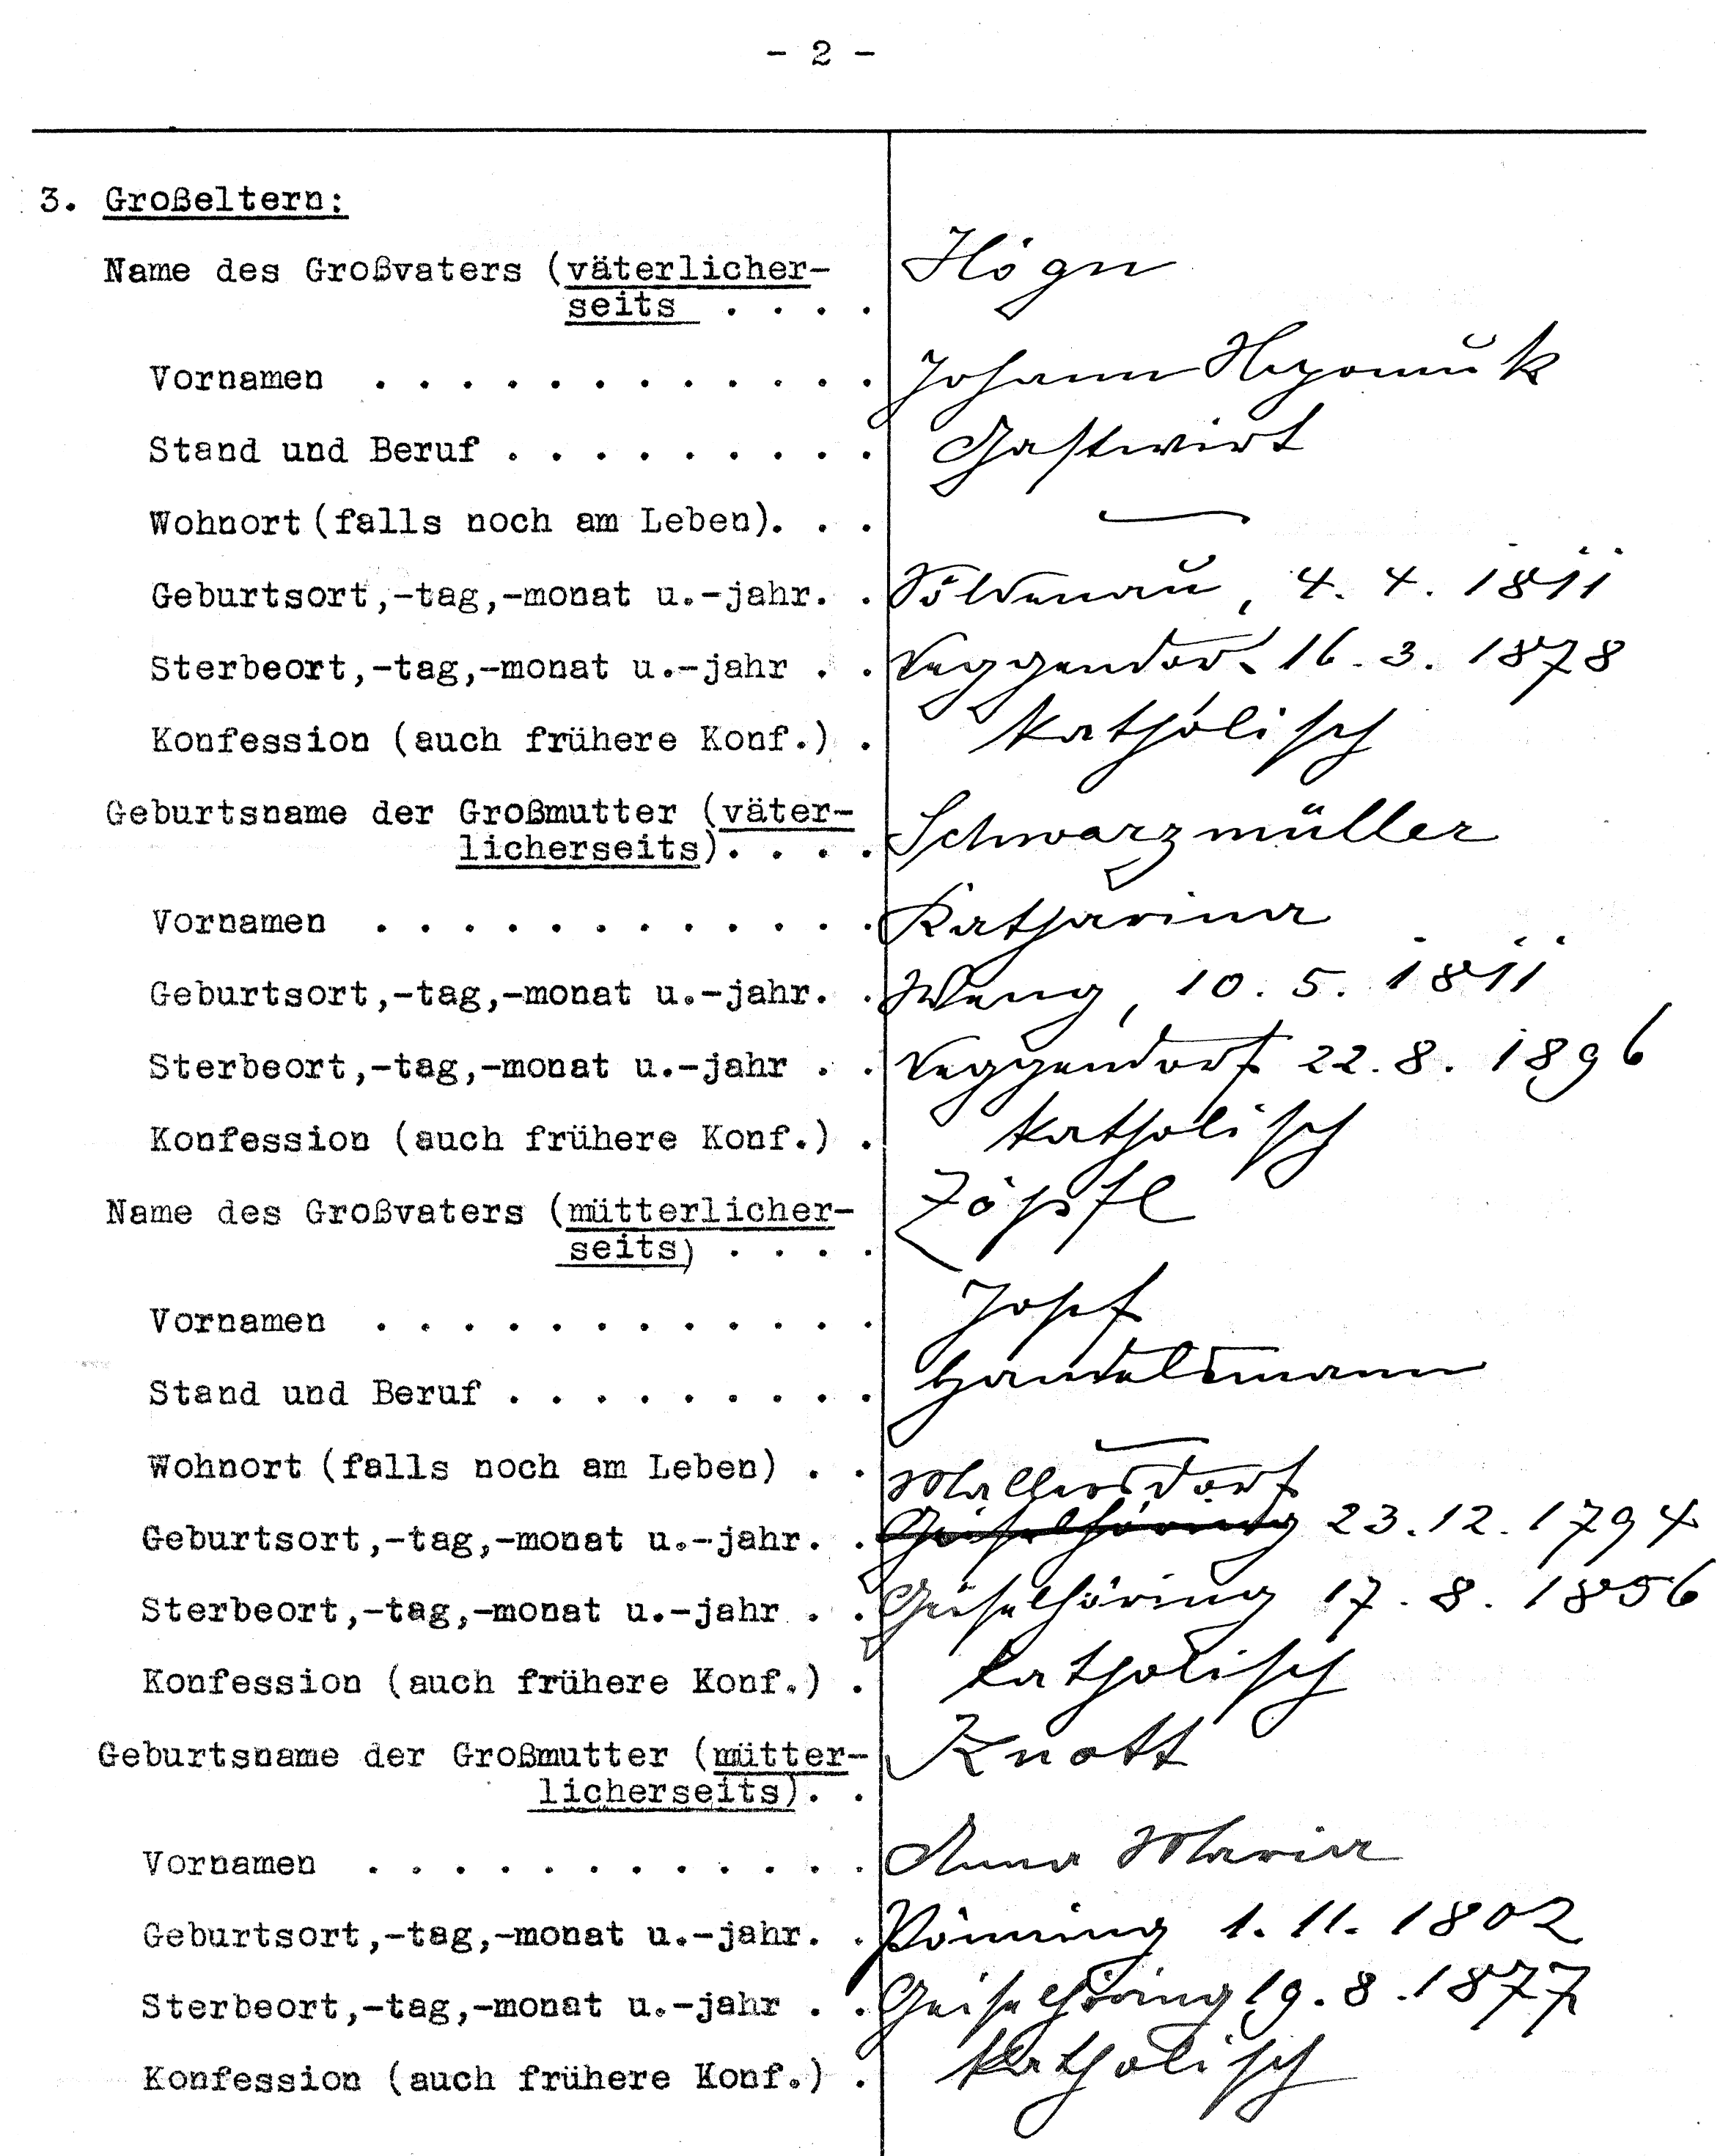 - 2 -
3. Großeltern:
Name des Großvaters (väterlicher- Högn
seits . . . .
Vornamen . . . . . . . . . . . . Johann Nepomuk
Stand und Beruf . . . . . . . . . Gastwirt
Wohnort (falls noch am Leben). . . —
Geburtsort,-tag,-monat u.-jahr. . 4. 4. 1811
Sterbeort,-tag,-monat u.-jahr . . Deggendorf 16. 3. 1878
Konfession (auch frühere Konf.) . katholisch
Geburtsname der Großmutter (väter-
licherseits). . . . Schwarzmüller
Vornamen . . . . . . . . . . . . Katharina
Geburtsort,-tag,-monat u.-jahr. . Weng, 10. 5. 1811
Sterbeort,-tag,-monat u.-jahr . . Deggendorf 22. 8. 1896
Konfession (auch frühere Konf.) . katholisch
Name des Großvaters (mütterlicher- Zöpfl
seits) . . . .
Vornamen . . . . . . . . . . . . Josef
Stand und Beruf . . . . . . . . . Handelsmann
Wohnort (falls noch am Leben) . . —
Mallersdorf
Geburtsort,-tag,-monat u.-jahr. . Geiselhöring 23. 12. 1794
Sterbeort,-tag,-monat u.-jahr . . Geiselhöring 17. 8. 1856
Konfession (auch frühere Konf.) . katholisch
Geburtsname der Großmutter (mütter- Knott
licherseits). .
Vornamen . . . . . . . . . . . . Anna Maria
Geburtsort,-tag,-monat u.-jahr. . Pönning 1. 11. 1802
Sterbeort,-tag,-monat u.-jahr . . Geiselhöring 19. 8. 1877
Konfession (auch frühere Konf.) . katholisch